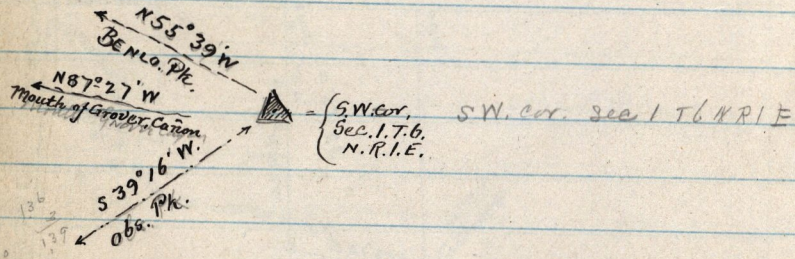 N55°39'W
BENLO. Pk.
N87°27'W
Mouth of Grover Cañon
S39°16'W.
Obs. Pk.
= { S.W. Cor.
Sec. 1. T. 6.
N. R. 1. E.
SW. cor. Sec 1 T6NR1E
136
3
139